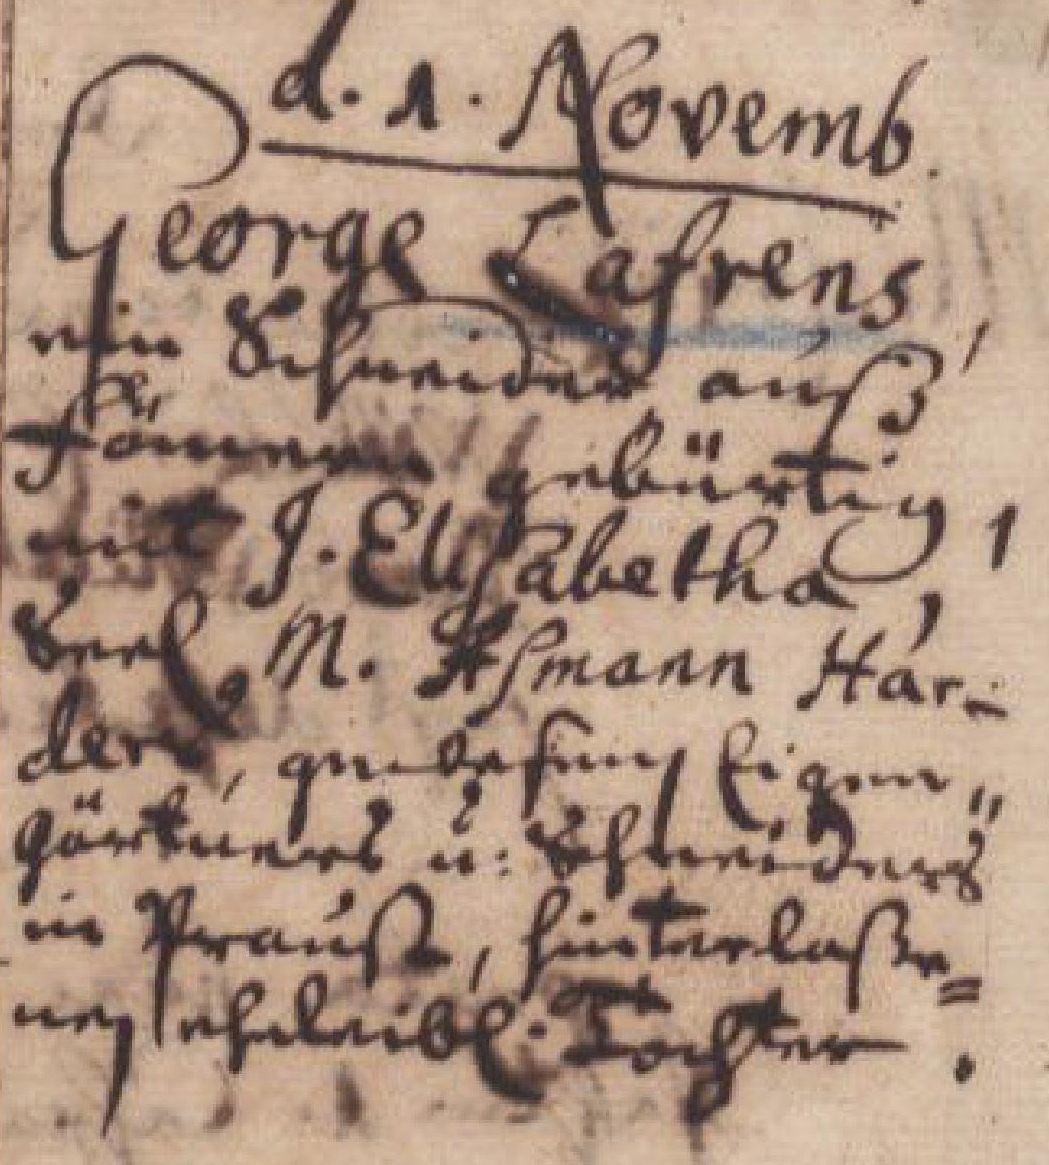 d. 1. Novemb.
George Lafrens,
ein Schneider auß
gebürtig,
mit J. Elisabetha,
Seel. M. Aſmann Har-
ders, gewesenen Eigen-
gärtners u. Schneiders
in Prauſt, hinterlaße=
nen eheleibl. Tochter.